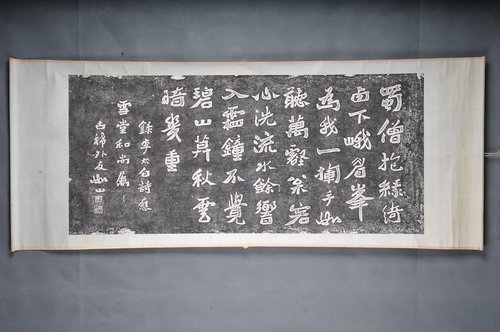 蜀僧抱綠綺
卥下峨眉峯
為我一揮手如
聽萬壑松客
心洗流水餘響
入霜鐘不覺
碧山暮秋雲
暗幾重
錄李太白詩應
雪堂和尚屬
古稀外